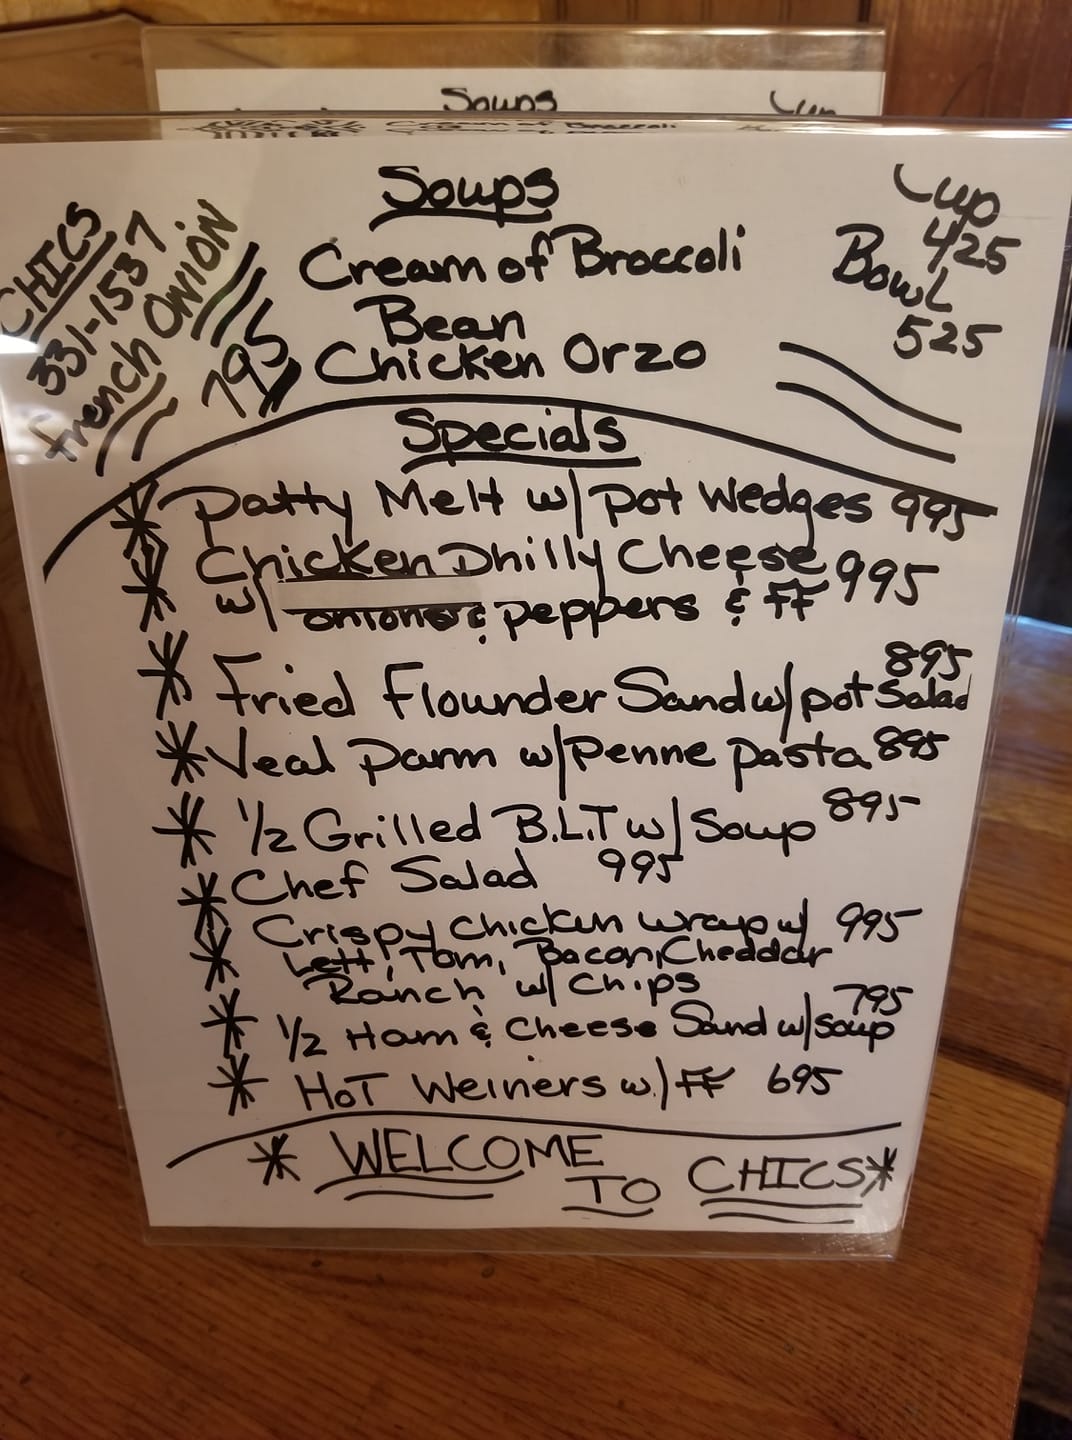 Soups
Cup
CHICS
331-1537
French ONiON
795
Soups
Cream of Broccoli
Bean
Chicken Orzo
Cup
425
Bowl
525
Specials
Patty Melt w/ pot Wedges 995
Chicken Philly Cheese 995
w/ onions & peppers & FF
Fried Flounder Sand w/ pot Salad 895
Veal Parm w/ Penne pasta 895
1/2 Grilled B.L.T w/ Soup 895
Chef Salad 995
Crispy Chicken wrap w/ 995
Lett, Tom, Bacon, Cheddar
Ranch w/ Chips
1/2 Ham & Cheese Sand w/ soup 795
HoT Weiners w/ FF 695
* WELCOME
TO CHICS *